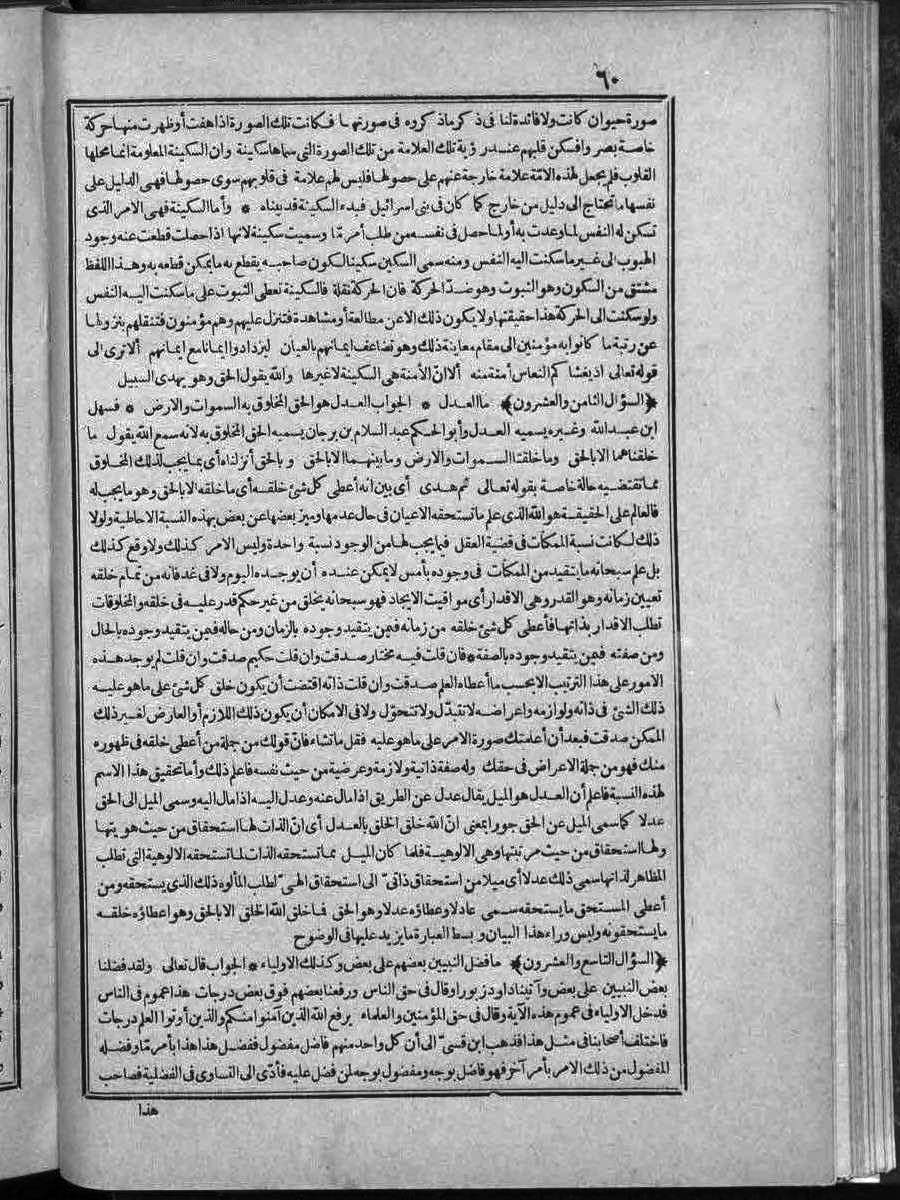 ٦٠
صورة حيوان كانت ولا فائدة لنا فى ذكر ما ذكروه فى صورتها فكانت تلك الصورة اذا هفت أو ظهرت منها حركة
خاصة بصر وافسكن قلبهم عند رؤية تلك العلامة من تلك الصورة التى سماها سكينة وان السكينة المعلومة انما محلها
القلوب فلم يجعل لهذه الامّة علامة خارجة عنهم على حصولها فليس لهم علامة فى قلوبهم سوى حصولها فهى الدليل على
نفسها ما تحتاج الى دليل من خارج كما كان فى بنى اسرائيل فهذه السكينة قد بيناه * وأما السكينة فهى الامر الذى
تسكن له النفس لما وعدت به أو لما حصل فى نفسه من طلب أمر مّا وسميت سكينة لانها اذا حصلت قطعت عنه وجود
الهبوب الى غير ما سكنت اليه النفس ومنه سمى السكين سكينا لكون صاحبه يقطع به ما يمكن قطعه به وهذا اللفظ
مشتق من السكون وهو الثبوت وهو ضدّ الحركة فان الحركة نقلة فالسكينة تعطى الثبوت على ما سكنت اليه النفس
ولو سكنت الى الحركة هذا حقيقتها ولا يكون ذلك الا عن مطالعة أو مشاهدة فتنزل عليهم وهم مؤمنون فتنقلهم بنزولها
عن رتبة ما كانوا به مؤمنين الى مقام معاينة ذلك وهو تضاعف ايمانهم بالعيان ليزدادوا ايمانا مع ايمانهم ألا ترى الى
قوله تعالى اذ يغشاكم النعاس أمنة منه ألا انّ الأمنة هى السكينة لا غيرها والله يقول الحق وهو يهدى السبيل
﴿السؤال الثامن والعشرون﴾ ما العدل * الجواب العدل هو الحق المخلوق به السموات والارض * فسهل
ابن عبد الله وغيره يسميه العدل وأبو الحكم عبد السلام بن برجان يسميه الحق المخلوق به لانه سمع الله يقول ما
خلقناهما الا بالحق وما خلقنا السموات والارض وما بينهما الا بالحق وبالحق أنزلناه أى بما يجب لذلك المخلوق
مما تقتضيه حالة خاصة بقوله تعالى ثم هدى أى بين انه أعطى كل شئ خلقه أى ما خلقه الا بالحق وهو ما يجب له
فالعالم على الحقيقة هو الله الذى علم ما تستحقه الاعيان فى حال عدمها وميز بعضها عن بعض بهذه النسبة الاحاطية ولولا
ذلك لكانت نسبة الممكنات فى قضية العقل فيما يجب لها من الوجود نسبة واحدة وليس الامر كذلك ولا وقع كذلك
بل علم سبحانه ما يتقيد من الممكنات فى وجوده بأمس لا يمكن عنده أن يوجده اليوم ولا فى غد فانه من تمام خلقه
تعيين زمانه وهو القدر وهى الاقدار أى مواقيت الايجاد فهو سبحانه يخلق من غير حكم قدر عليه فى خلقه والمخلوقات
تطلب الاقدار بذاتها فأعطى كل شئ خلقه من زمانه فيمن يتقيد وجوده بالزمان ومن حاله فيمن يتقيد وجوده بالحال
ومن صفته فيمن يتقيد وجوده بالصفة * فان قلت فيه مختار صدقت وان قلت حكيم صدقت وان قلت لم يوجد هذه
الامور على هذا الترتيب الا بحسب ما أعطاه العلم صدقت وان قلت ذاته اقتضت أن يكون خلق كل شئ على ما هو عليه
ذلك الشئ فى ذاته ولوازمه واعراضه لا تتبدّل ولا تتحوّل ولا فى الامكان أن يكون ذلك اللازم أو العارض لغير ذلك
الممكن صدقت فبعد أن أعلمتك صورة الامر على ما هو عليه فقل ما تشاء فانّ قولك من جملة من أعطى خلقه فى ظهوره
منك فهو من جملة الاعراض فى حقك وله صفة ذاتية ولازمة وعرضية من حيث نفسه فاعلم ذلك وأما تحقيق هذا الاسم
لهذه النسبة فاعلم أن العدل هو الميل يقال عدل عن الطريق اذا مال عنه وعدل اليه اذا مال اليه وسمى الميل الى الحق
عدلا كما سمى الميل عن الحق جورا بمعنى انّ الله خلق الخلق بالعدل أى انّ الذات لها استحقاق من حيث هويتها
ولها استحقاق من حيث مرتبتها وهى الالوهية فلما كان الميل مما تستحقه الذات لما تستحقه الالوهية التى تطلب
المظاهر لذاتها سمى ذلك عدلا أى ميلا من استحقاق ذاتىّ الى استحقاق الهىّ لطلب المألوه ذلك الذى يستحقه ومن
أعطى المستحق ما يستحقه سمى عادلا وعطاؤه عدلا وهو الحق فما خلق الله الخلق الا بالحق وهو اعطاؤه خلقه
ما يستحقونه وليس وراء هذا البيان وبسط العبارة ما يزيد عليها فى الوضوح
﴿السؤال التاسع والعشرون﴾ ما فضل النبيين بعضهم على بعض وكذلك الاولياء * الجواب قال تعالى ولقد فضلنا
بعض النبيين على بعض وآتينا داود زبورا وقال فى حق الناس ورفعنا بعضهم فوق بعض درجات هذا عموم فى الناس
فدخل الاولياء فى عموم هذه الآية وقال فى حق المؤمنين والعلماء يرفع الله الذين آمنوا منكم والذين أوتوا العلم درجات
فاختلف أصحابنا فى مثل هذا فذهب ابن قسىّ الى أن كل واحد منهم فاضل مفضول ففضل هذا هذا بأمر مّا وفضله
المفضول من ذلك الامر بأمر آخر فهو فاضل بوجه ومفضول بوجه لمن فضل عليه فأدّى الى التساوى فى الفضلية فصاحب
هذا